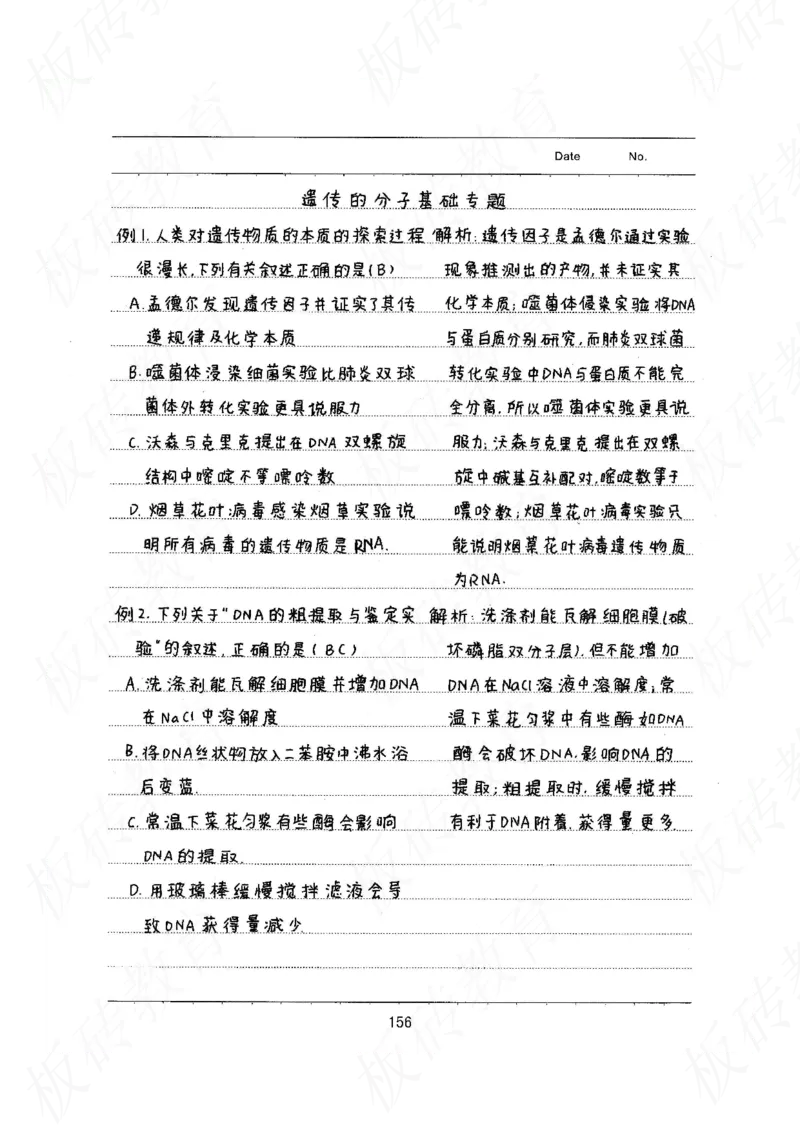 Date No.
遗传的分子基础专题
例1.人类对遗传物质的本质的探索过程
很漫长,下列有关叙述正确的是(B)
A.孟德尔发现遗传因子并证实了其传
递规律及化学本质
B.噬菌体浸染细菌实验比肺炎双球
菌体外转化实验更具说服力
C.沃森与克里克提出在DNA双螺旋
结构中嘧啶不等嘌呤数
D.烟草花叶病毒感染烟草实验说
明所有病毒的遗传物质是RNA.
解析:遗传因子是孟德尔通过实验
现象推测出的产物,并未证实其
化学本质;噬菌体侵染实验将DNA
与蛋白质分别研究,而肺炎双球菌
转化实验中DNA与蛋白质不能完
全分离.所以噬菌体实验更具说
服力;沃森与克里克提出在双螺
旋中碱基互补配对,嘧啶数等于
嘌呤数;烟草花叶病毒实验只
能说明烟草花叶病毒遗传物质
为RNA.
例2.下列关于"DNA的粗提取与鉴定实
验"的叙述,正确的是(BC)
A.洗涤剂能瓦解细胞膜并增加DNA
在NaCl中溶解度
B.将DNA丝状物放入二苯胺中沸水浴
后变蓝.
C.常温下菜花匀浆有些酶会影响
DNA的提取.
D.用玻璃棒缓慢搅拌滤液会导
致DNA获得量减少
解析:洗涤剂能瓦解细胞膜(破
坏磷脂双分子层).但不能增加
DNA在NaCl溶液中溶解度;常
温下菜花匀浆中有些酶如DNA
酶会破坏DNA.影响DNA的
提取;粗提取时.缓慢搅拌
有利于DNA附着.获得量更多.
156
板砖教育